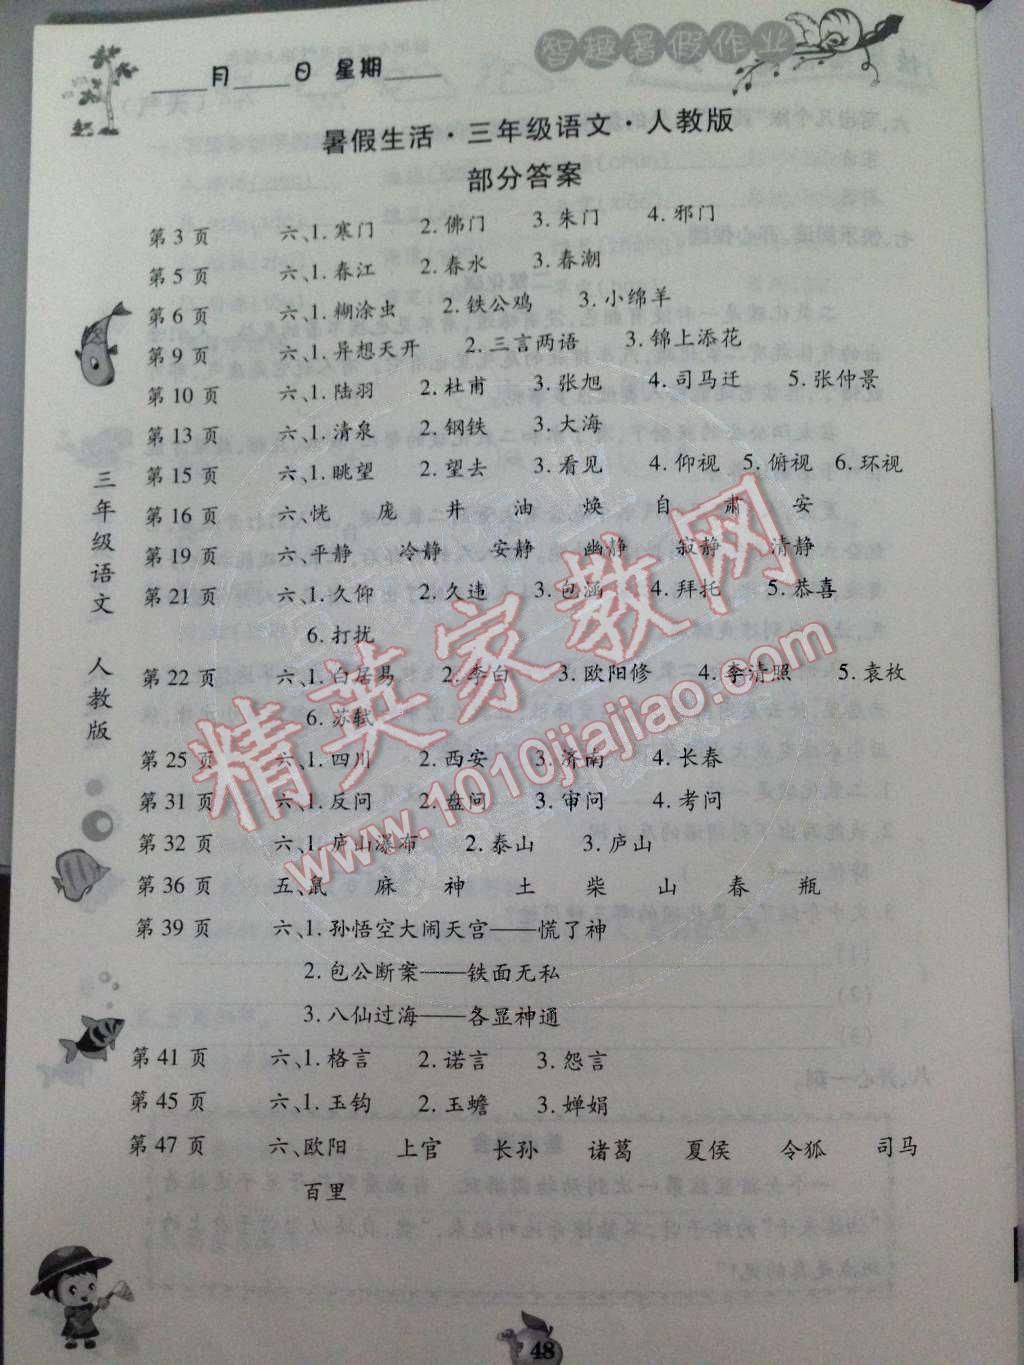 智趣暑假作业
____月____日 星期____
暑假生活·三年级语文·人教版
部分答案
第 3 页 六、1.寒门 2.佛门 3.朱门 4.邪门
第 5 页 六、1.春江 2.春水 3.春潮
第 6 页 六、1.糊涂虫 2.铁公鸡 3.小绵羊
第 9 页 六、1.异想天开 2.三言两语 3.锦上添花
第 10 页 六、1.陆羽 2.杜甫 3.张旭 4.司马迁 5.张仲景
第 13 页 六、1.清泉 2.钢铁 3.大海
第 15 页 六、1.眺望 2.望去 3.看见 4.仰视 5.俯视 6.环视
第 16 页 六、恍 庞 井 油 焕 自 肃 安
第 19 页 六、平静 冷静 安静 幽静 寂静 清静
第 21 页 六、1.久仰 2.久违 3.包涵 4.拜托 5.恭喜
6.打扰
第 22 页 六、1.白居易 2.李白 3.欧阳修 4.李清照 5.袁枚
6.苏轼
第 25 页 六、1.四川 2.西安 3.济南 4.长春
第 31 页 六、1.反问 2.盘问 3.审问 4.考问
第 32 页 六、1.庐山瀑布 2.泰山 3.庐山
第 36 页 五、鼠 麻 神 土 柴 山 春 瓶
第 39 页 六、1.孙悟空大闹天宫——慌了神
2.包公断案——铁面无私
3.八仙过海——各显神通
第 41 页 六、1.格言 2.诺言 3.怨言
第 45 页 六、1.玉钩 2.玉蟾 3.婵娟
第 47 页 六、欧阳 上官 长孙 诸葛 夏侯 令狐 司马
百里
三年级语文 人教版
精英家教网
www.1010jiajiao.com
48